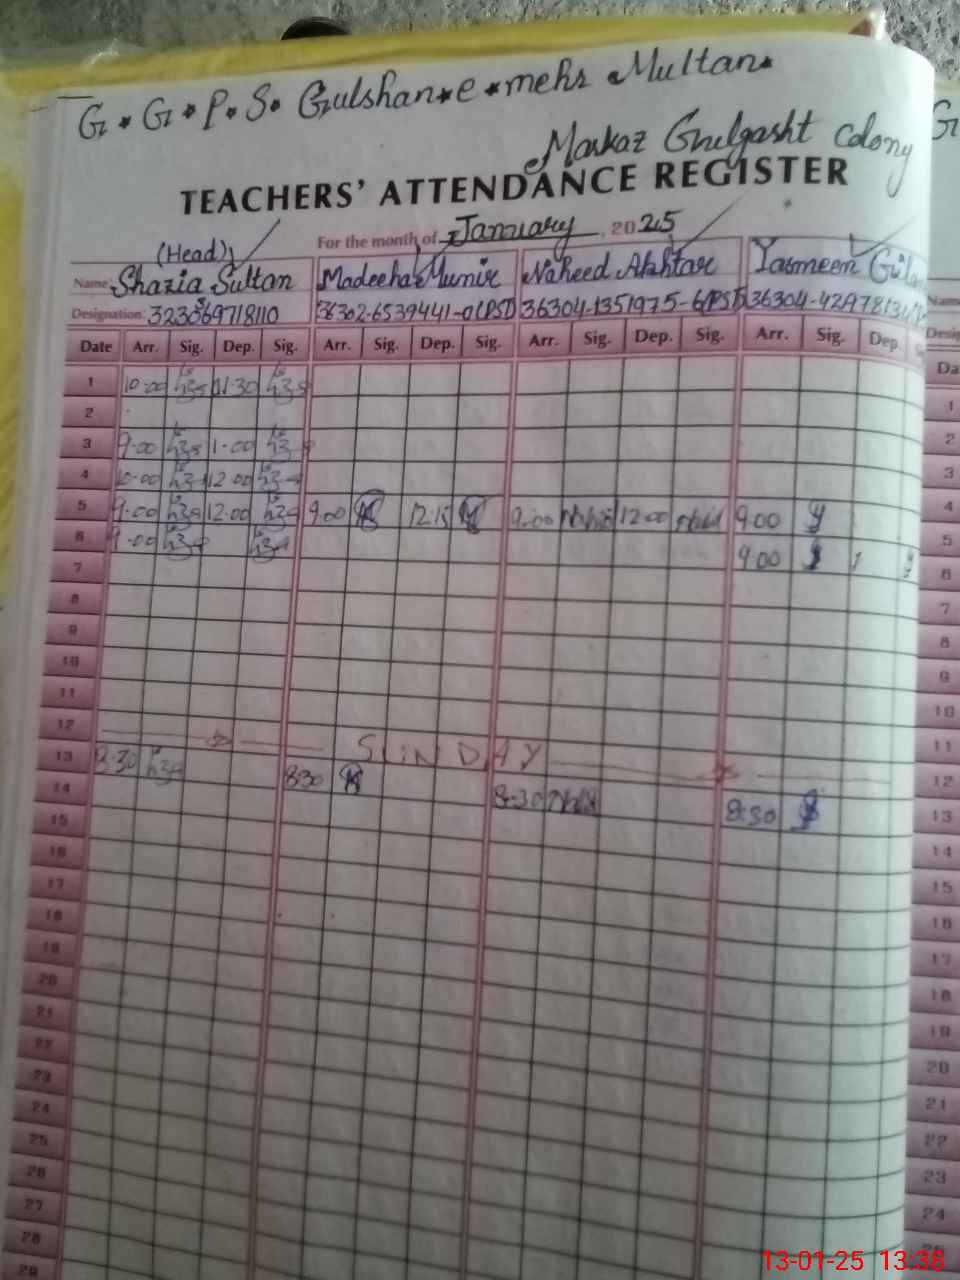 G.G.P.S. Gulshan.e.mehr Multan.
Markaz Ghulgasht Colony
TEACHERS' ATTENDANCE REGISTER
For the month of January, 2025
(Head)
Name Shazia Sultan Madeeha Munir Naheed Akhtar Yasmeen
Designation: 36302-6539441-0(PST) 36304-1351975-6(PST)
Date Arr. Sig. Dep. Sig. Arr. Sig. Dep. Sig. Arr. Sig. Dep. Sig. Arr. Sig. Dep.
1 10-00 11-30
2
3 9-00 1-00
4 10-00 12-00
5 9-00 12-00 9.00 12.15 9-00 12-00 9.00
6 9-00 9.00
7
8
9
10
11
12 SUNDAY
13 8-30 8:30 8-30 8:30
14
15
16
17
18
19
20
21
22
23
24
25
26
27
28
29
Name
Da
1
2
3
4
5
6
7
8
9
10
11
12
13
14
15
16
17
18
19
20
21
22
23
24
25
13-01-25 13:38